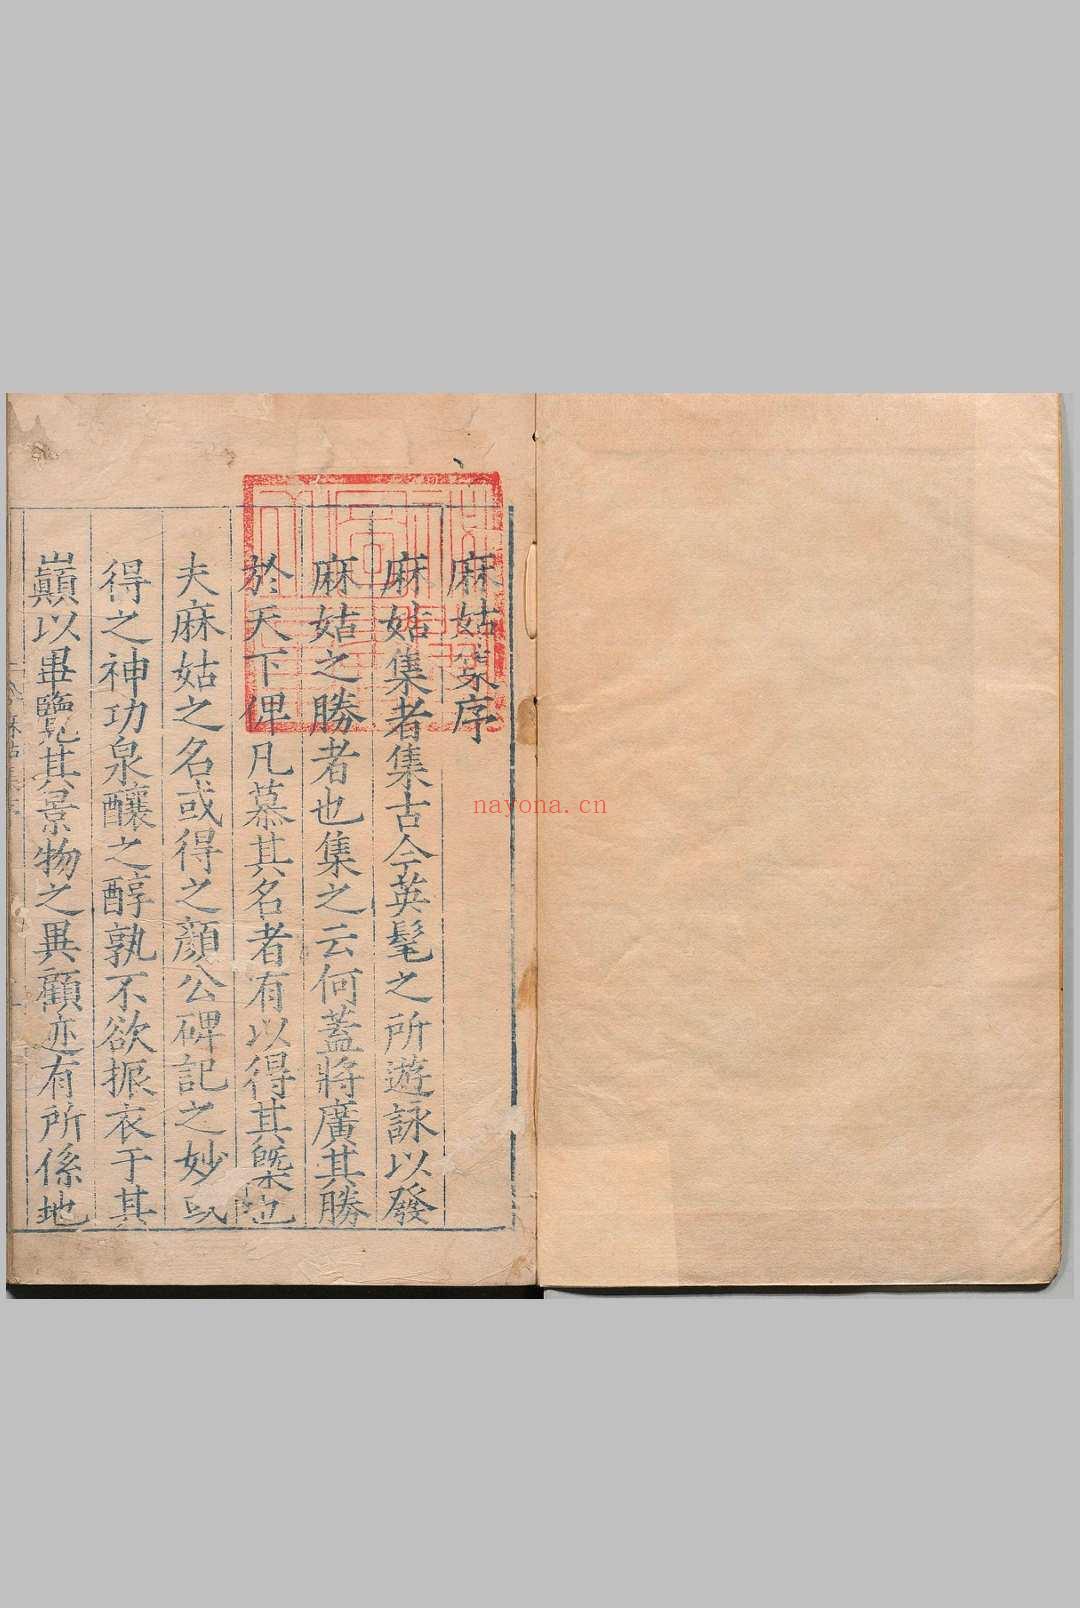 麻姑集序
麻姑集者集古今英髦之所遊詠以發
麻姑之勝者也集之云何蓋將廣其勝
於天下俾凡慕其名者有以得其槩也
夫麻姑之名或得之顔公碑記之妙或
得之神功泉釀之醇孰不欲振衣于其
巔以畢覽其景物之異顧迹有所係地
麻姑集序
nayona.cn